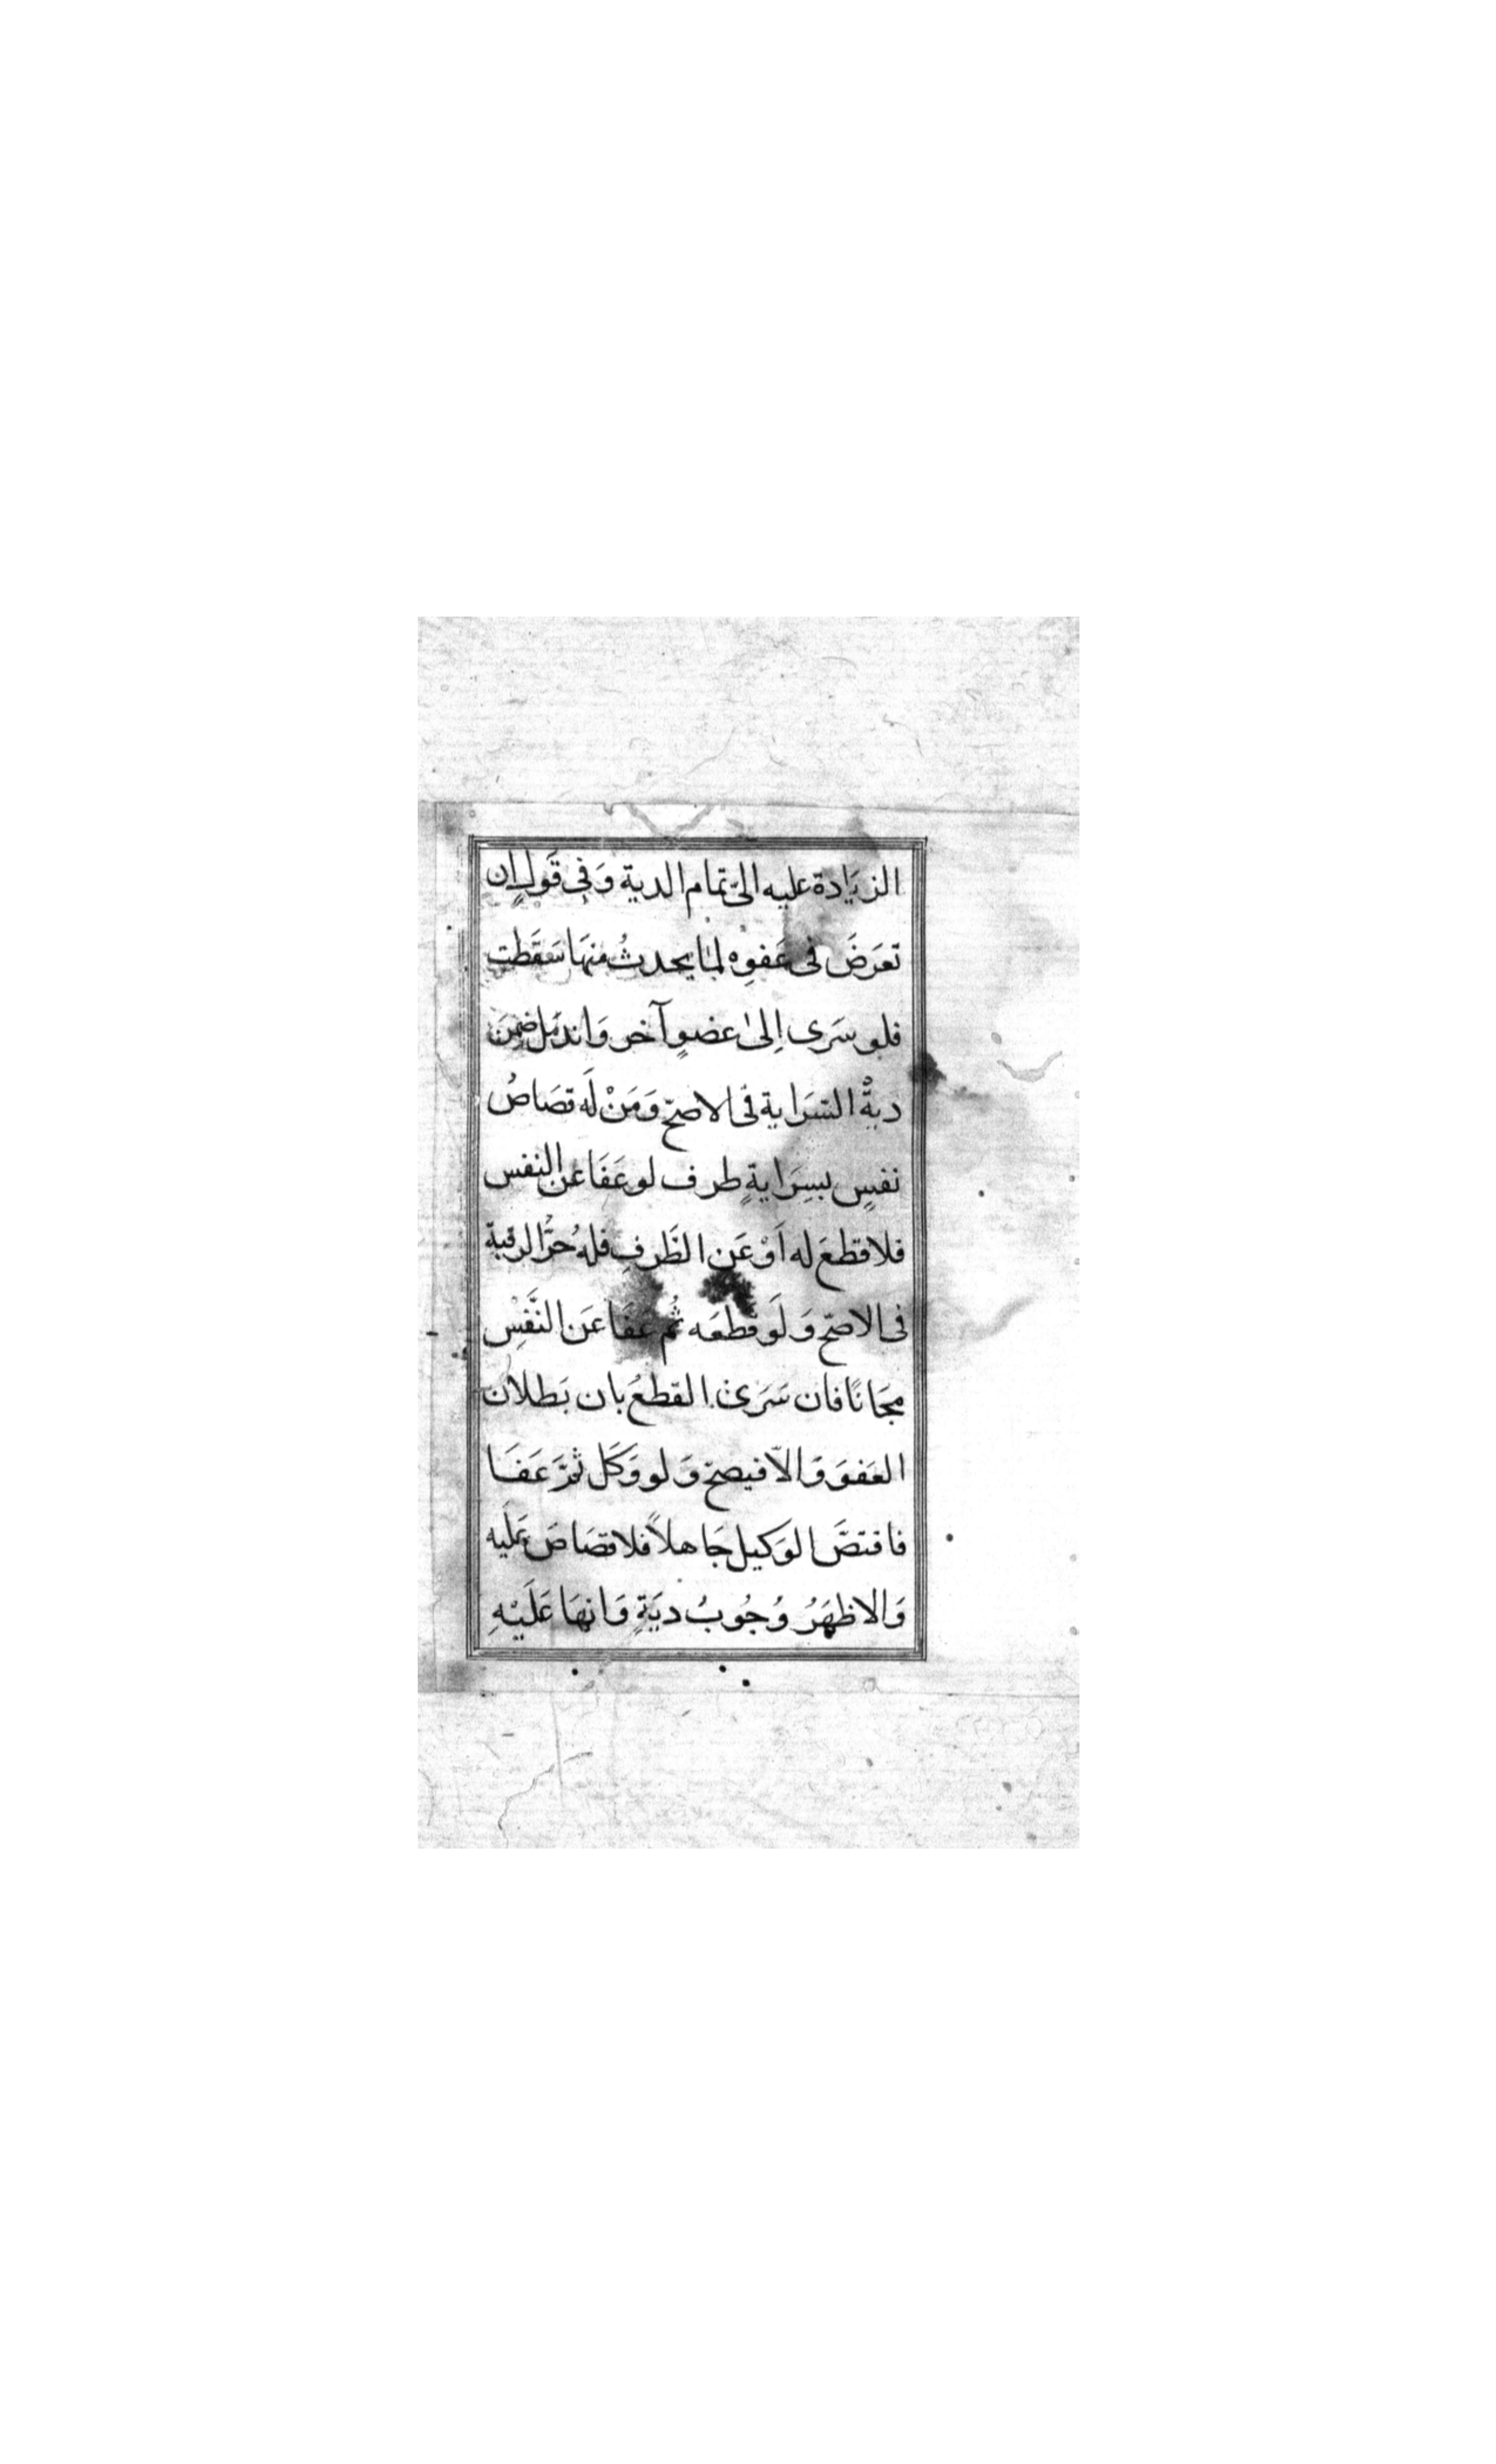 الزيَادة عليه الىّ تمام الدية وَفى قَول إن
تعرَضَ فى عَفوِه لمٰا يحدثُ منهَا سَقَطت
فلو سَرى إلىٰ عضوٍ آخر وَاندمَل ضمنَ
ديةُ السّرَاية فى الاصحّ وَمَنْ لَه قصَاصُ
نفسٍ بسِرَايةٍ طرف لو عَفَا عن النفس
فلا قطعَ له اَوْ عَن الطَّرفِ فله حزُّ الرقبة
فى الاصحّ وَلَو قطعَه ثُم عَفَا عَن النَّفسْ
مجَانًا فان سَرَى القطعُ بان بَطلان
العَفوَ وَالاّ فيصحّ وَلو وَكَّل ثمَّ عَفَا
فاقتصَّ الوَكيل جَاهلاً فلا قصَاصَ عَلَيه
وَالاظهَرُ وُجُوبُ ديَةٍ وَانهَا عَلَيْهِ